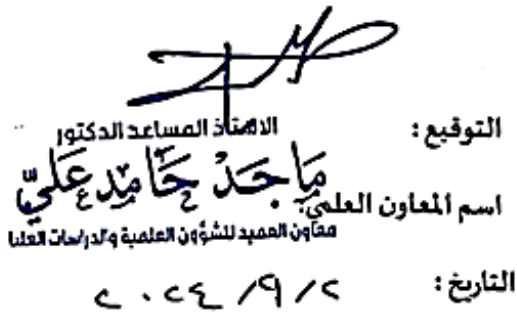 التوقيع :
الاستاذ المساعد الدكتور
مَاجَدْ حَامِد عَليّ
اسم المعاون العلمي:
معاون العميد للشؤون العلمية والدراسات العليا
التاريخ : ٢ / ٩ / ٢٠٢٤